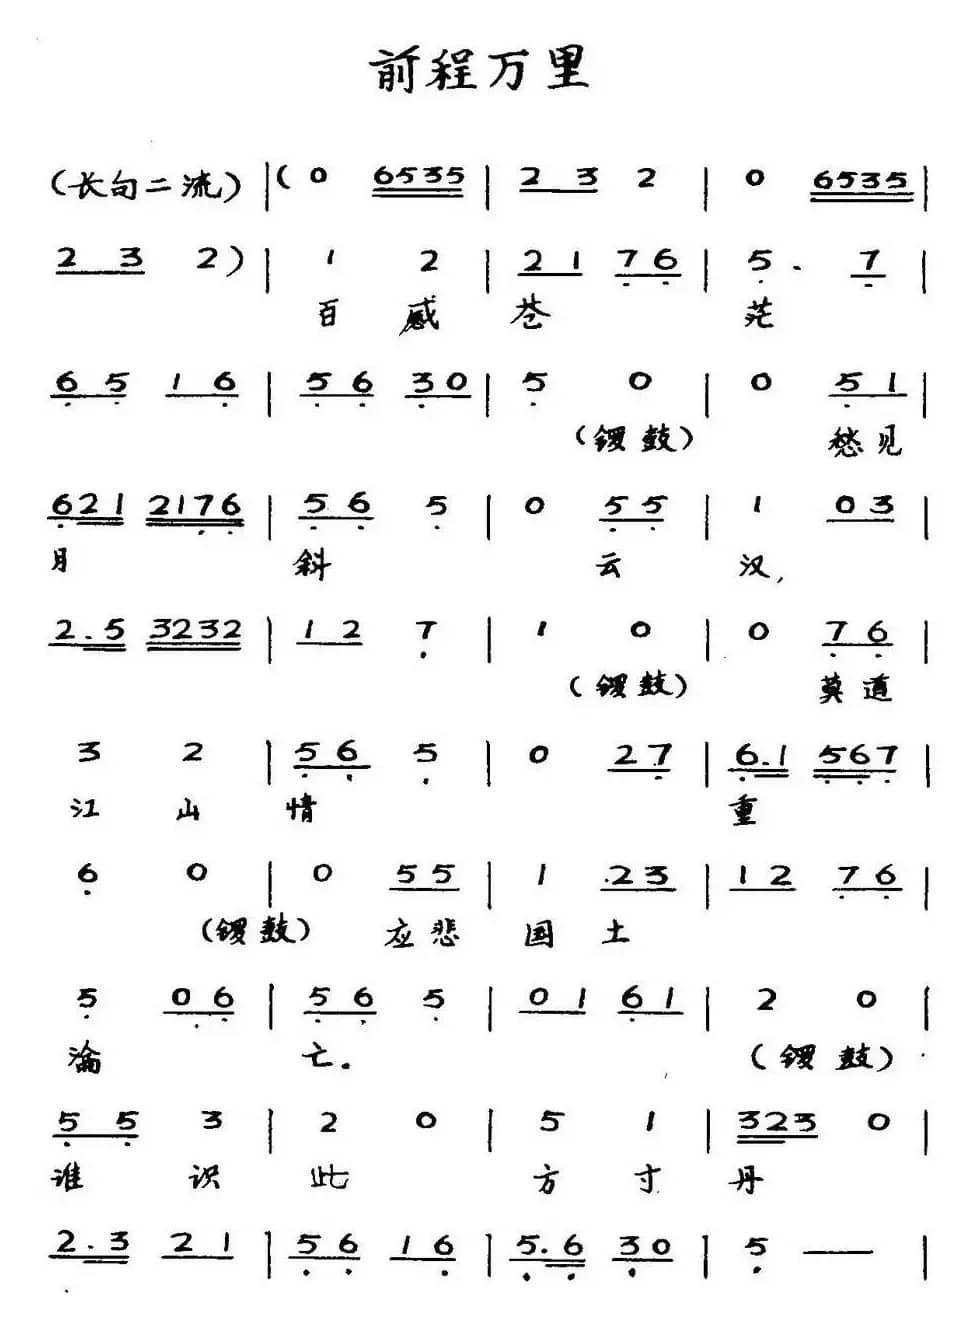 前程万里
(长句二流) | (0 6535 | 2 3 2 | 0 6535 |
2 3 2) | 1 2 | 21 76 | 5. 7 |
百 感 苍 茫
65 16 | 56 30 | 5 0 | 0 51 |
(锣鼓) 愁见
621 2176 | 56 5 | 0 55 | 1 03 |
月 斜 云 汉,
2.5 3232 | 12 7 | 1 0 | 0 76 |
(锣鼓) 莫道
3 2 | 56 5 | 0 27 | 6.1 567 |
江 山 情 重
6 0 | 0 55 | 1 23 | 12 76 |
(锣鼓) 应悲 国 土
5 06 | 56 5 | 01 61 | 2 0 |
沦 亡。 (锣鼓)
55 3 | 2 0 | 5 1 | 323 0 |
谁 识 此 方 寸 丹
2.3 21 | 56 16 | 5.6 30 | 5 — |